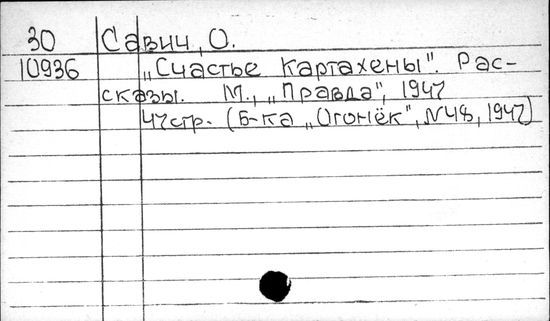 30 Савич, О.
10936 „Счастье Картахены". Рас-
сказы. М., „Правда", 1947
47стр. (Б-ка „Огонёк", №48, 1947)